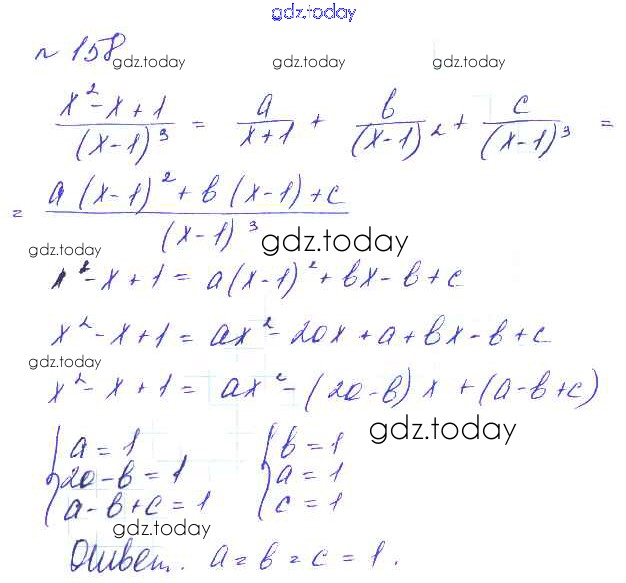 gdz.today
№ 158
gdz.today gdz.today gdz.today
(x² - x + 1)/(x-1)³ = a/(x+1) + b/(x-1)² + c/(x-1)³ =
= (a(x-1)² + b(x-1) + c)/(x-1)³
gdz.today gdz.today
x² - x + 1 = a(x-1)² + bx - b + c
x² - x + 1 = ax² - 2ax + a + bx - b + c
gdz.today
x² - x + 1 = ax² - (2a - b)x + (a - b + c)
gdz.today
{ a = 1 { b = 1
2a - b = 1 a = 1
a - b + c = 1 c = 1
gdz.today
Ответ. a = b = c = 1.
gdz.today